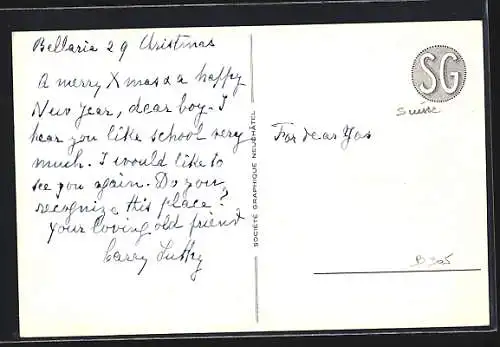 Bellaria 29 Christmas
A merry Xmas & a happy
New Year, dear boy. I
hear you like school very
much. I would like to
see you again. Do you
recognize this place?
Your loving old friend
SOCIÉTÉ GRAPHIQUE NEUCHÂTEL
SG
Suisse
For dear
B 305